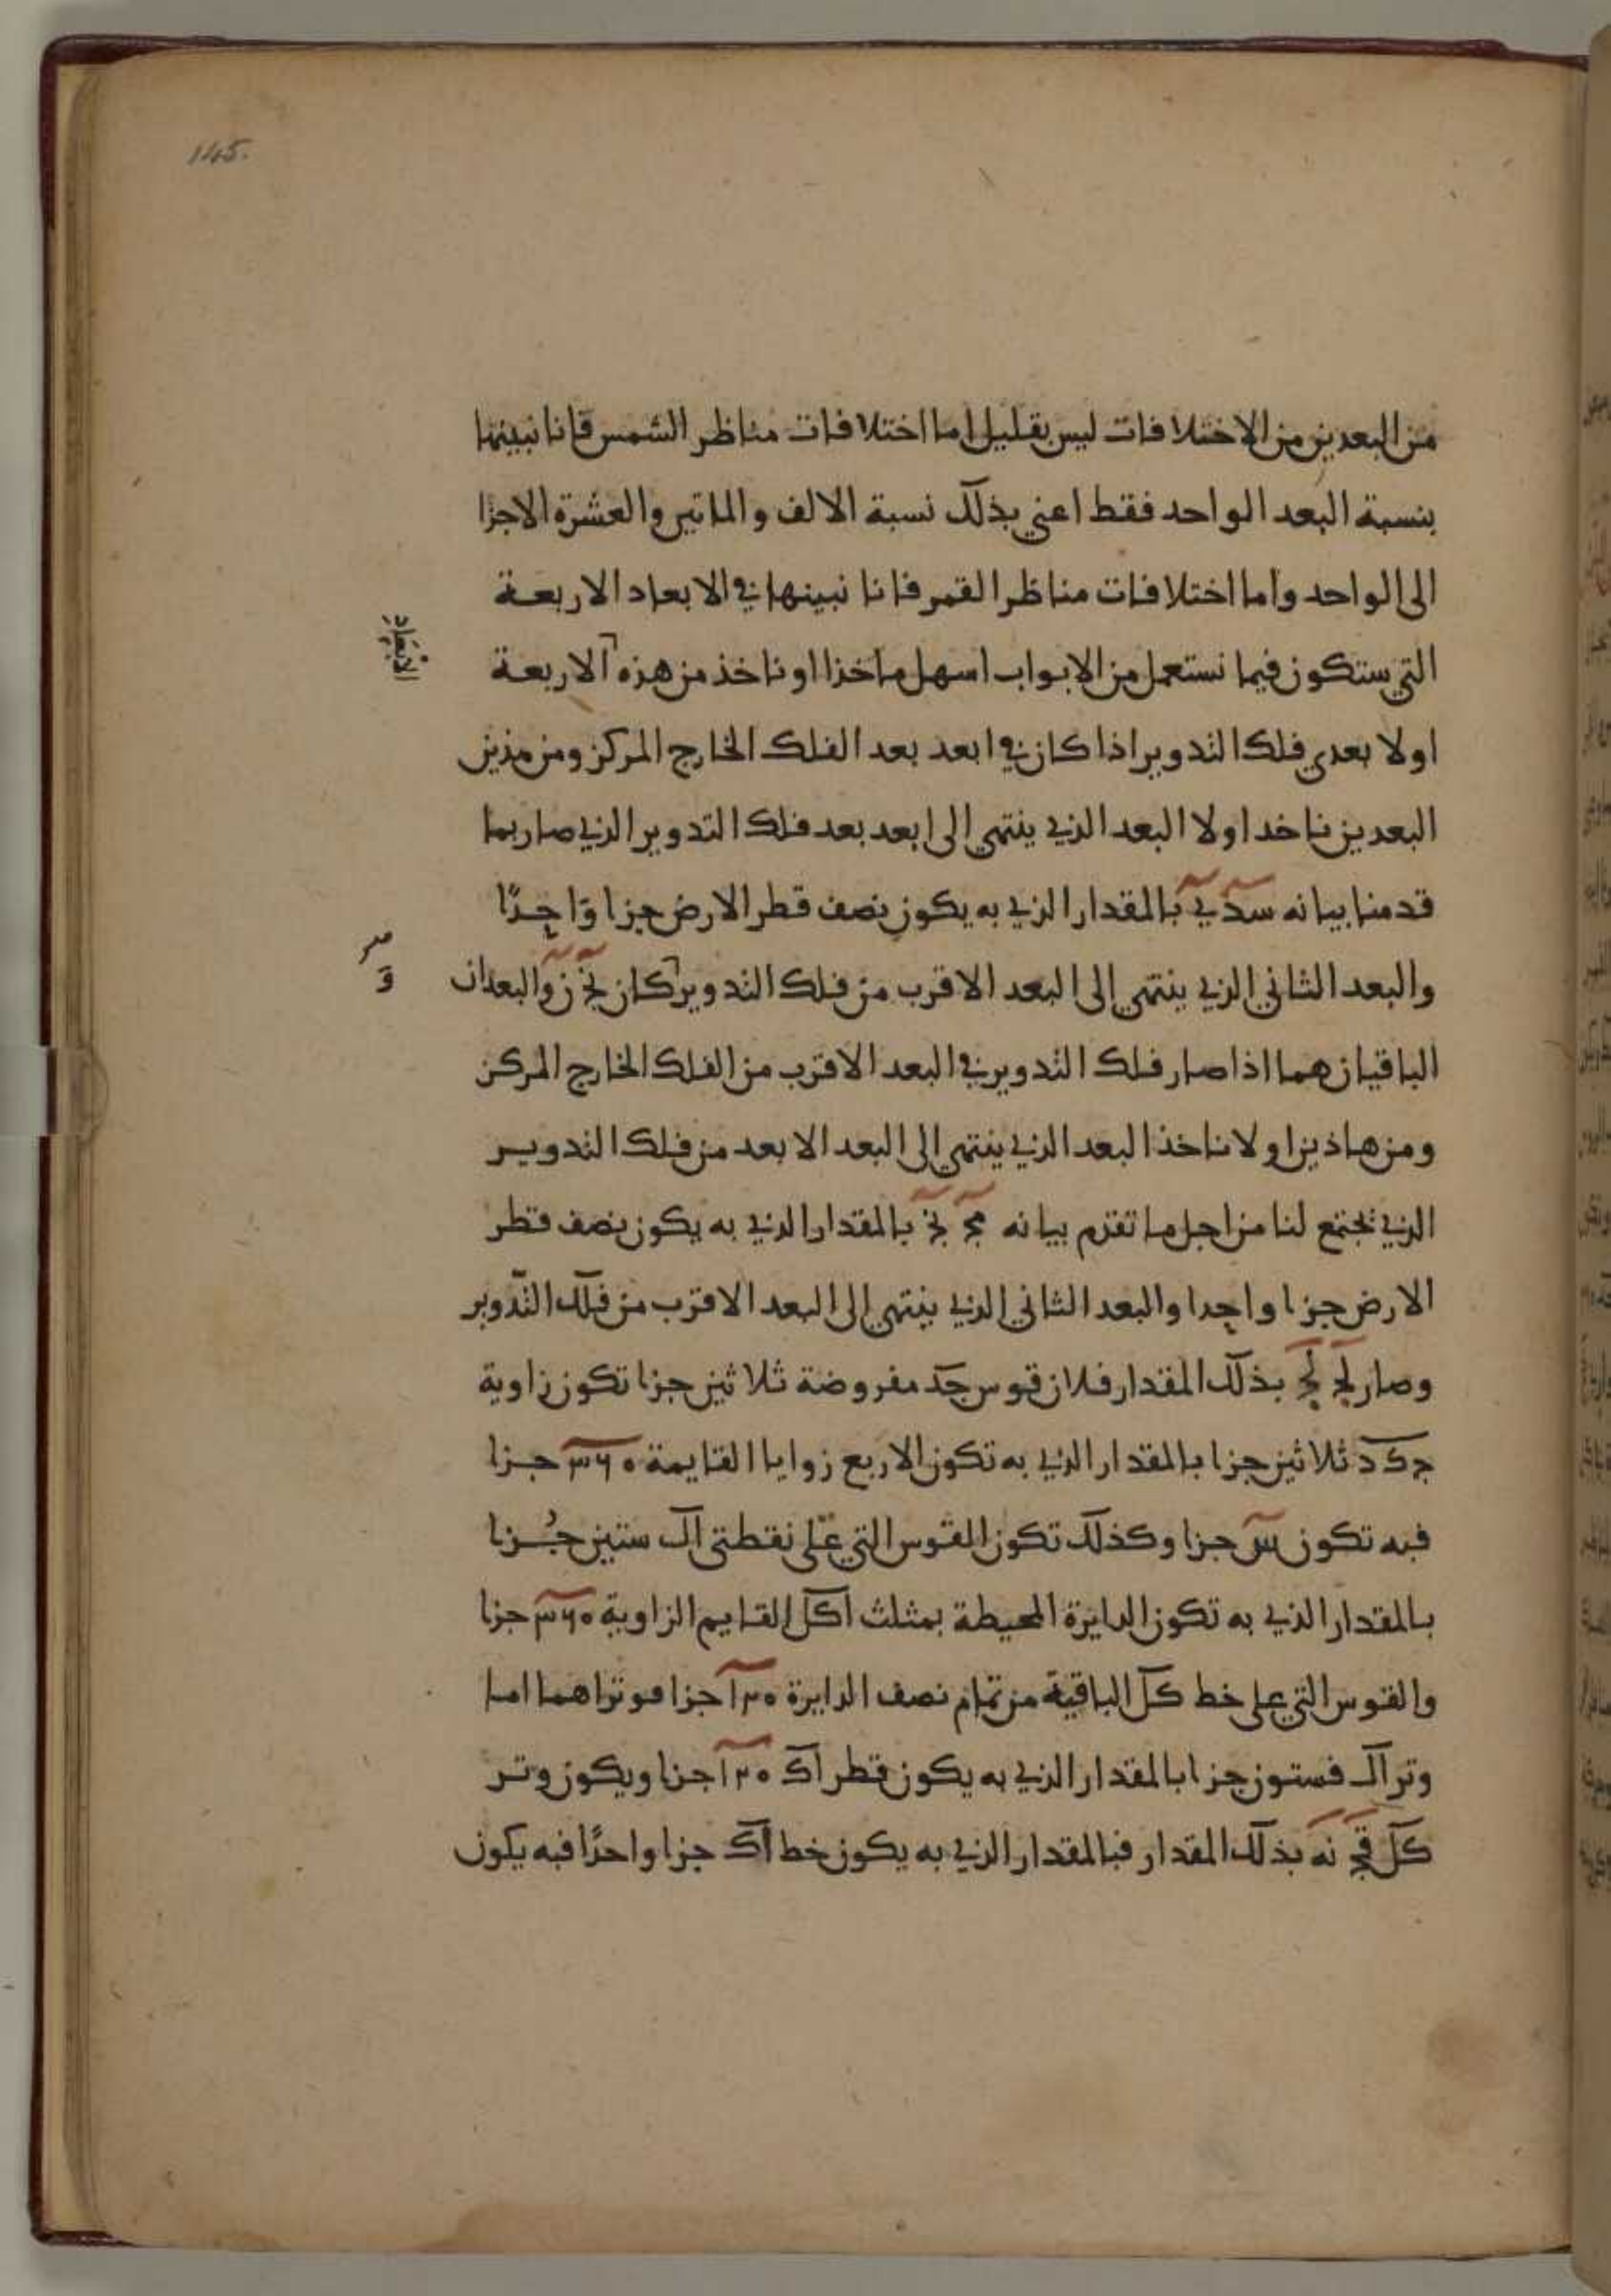 145.
من البعدين من الاختلافات ليس بقليل اما اختلافات مناظر الشمس فانا نبينها
بنسبة البعد الواحد فقط اعني بذلك نسبة الالف والماتين والعشرة الاجزا
الى الواحد واما اختلافات مناظر القمر فانا نبينها في الابعاد الاربعة
التي ستكون فيما نستعمل من الابواب اسهل ماخذا او ناخذ من هذه الاربعة
الابعاد
اولا بعدي فلك التدوير اذا كان في ابعد بعد الفلك الخارج المركز ومن هذين
البعدين ناخد اولا البعد الذي ينتهي الى ابعد بعد فلك التدوير الذي صار بما
قدمنا بيانه سد ي بالمقدار الذي به يكون نصف قطر الارض جزا واحدًا
والبعد الثاني الذي ينتهي الى البعد الاقرب من فلك التدوير كان نج ن والبعدان
الباقيان هما اذا صار فلك التدوير في البعد الاقرب من الفلك الخارج المركز
ومن هاذين اولا ناخذ البعد الذي ينتهي الى البعد الابعد من فلك التدويـر
الذي نجتمع لنا من اجل ما تقدم بيانه مج نج بالمقدار الذي به يكون نصف قطر
الارض جزا واحدا والبعد الثاني الذي ينتهي الى البعد الاقرب من فلك التدوير
وصار لج لج بذلك المقدار فلان قوس جد مفروضة ثلاثين جزا تكون زاوية
جكد ثلاثين جزا بالمقدار الذي به تكون الاربع زوايا القايمة ٣٦٠ جـزا
فبه تكون س جزا وكذلك تكون القوس التي على نقطتي ال ستين جُـزا
بالمقدار الذي به تكون الدايرة المحيطة بمثلث اكل القايم الزاوية ٣٦٠ جزا
والقوس التي على خط كل الباقية من تمام نصف الدايرة ١٢٠ جزا فوتراهما اما
وتر ال فستون جزا بالمقدار الذي به يكون قطر اك ١٢٠ جزا ويكون وتـر
كل قج نه بذلك المقدار فبالمقدار الذي به يكون خط اك جزا واحدًا فبه يكون